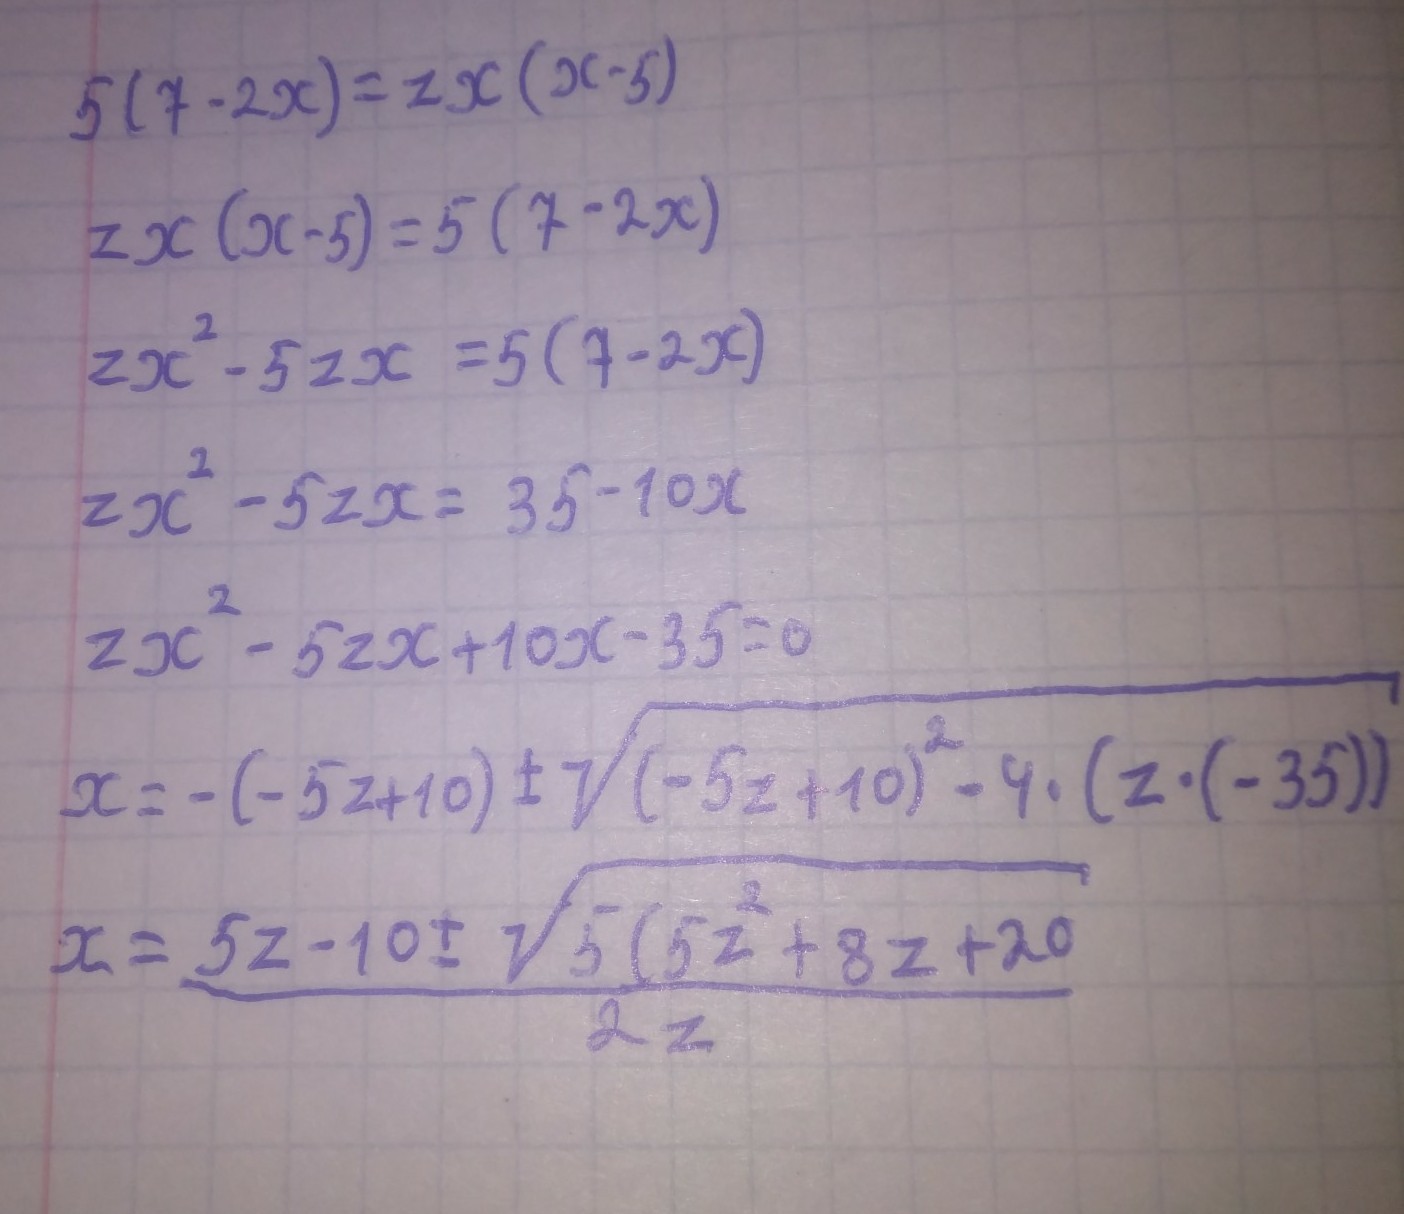 5(7-2x)=zx(x-5)
zx(x-5)=5(7-2x)
zx²-5zx =5(7-2x)
zx²-5zx= 35-10x
zx²-5zx+10x-35=0
x=-(-5z+10)±√(-5z+10)²-4·(z·(-35))
x= 5z-10±√5(5z²+8z+20
2z